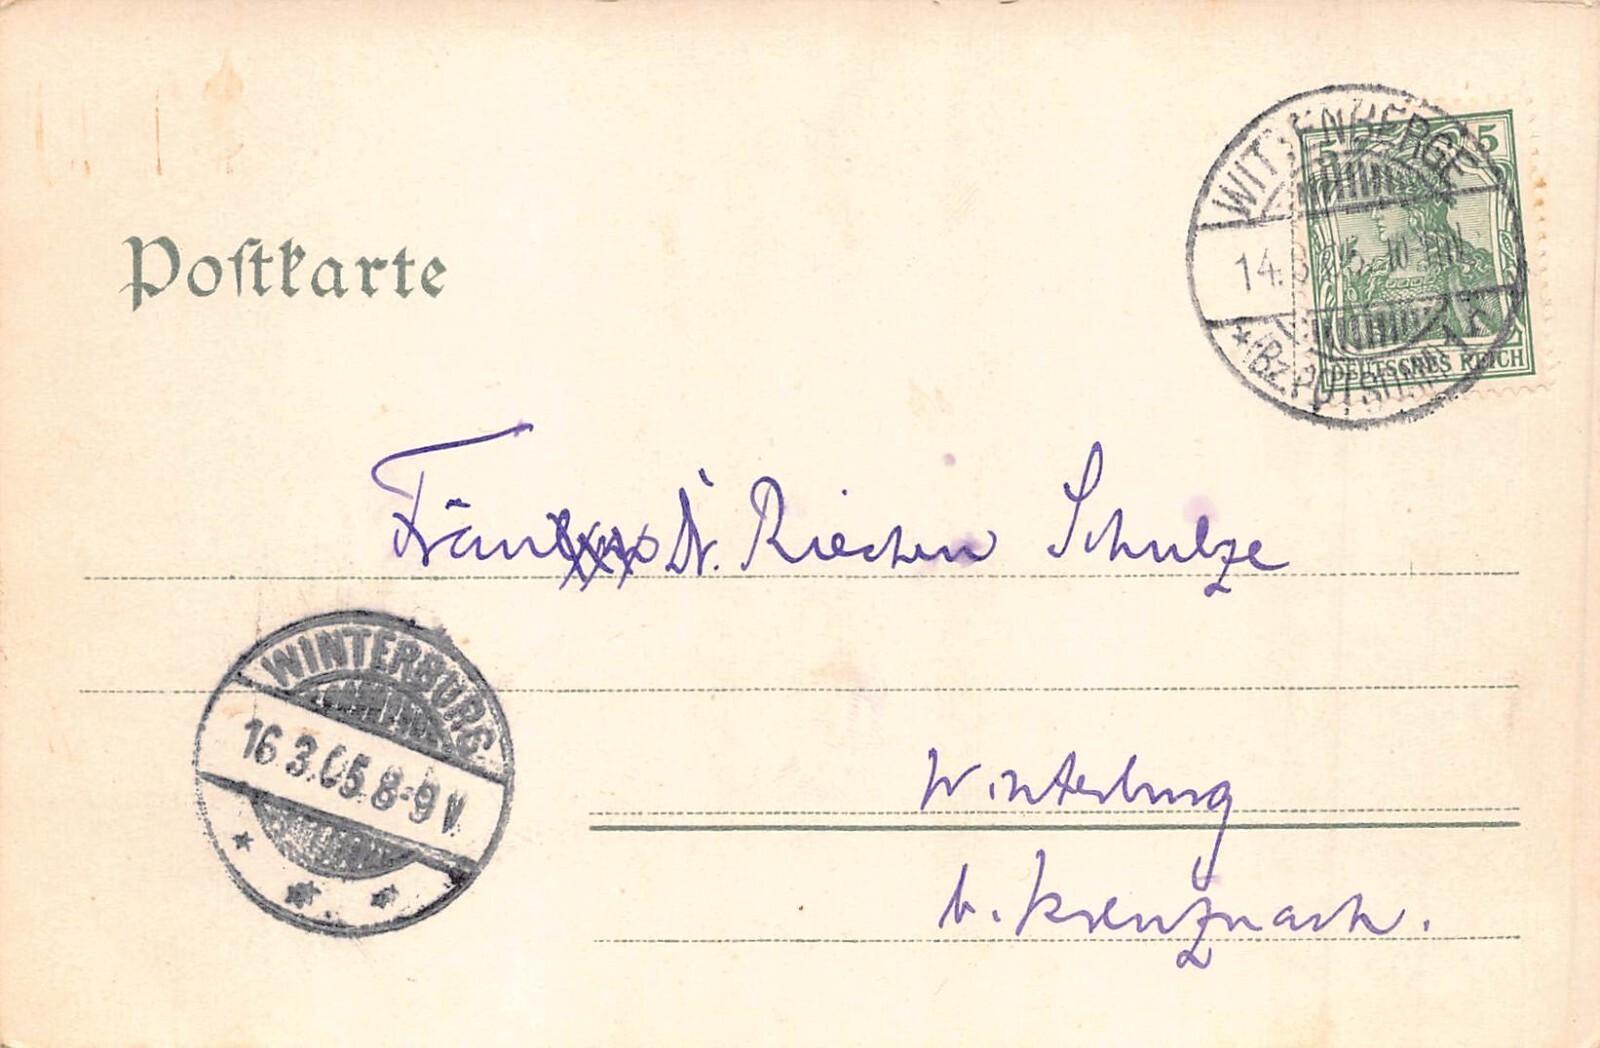 Postkarte
5 5
DEUTSCHES REICH
WITTENBERGE
14. 3. 05. 10-11N
* (Bz. POTSDAM) 1
Dr. Riechen Schulze
WINTERBURG
16 3.05.8-9 V
Winterburg
b. Kreuznach.